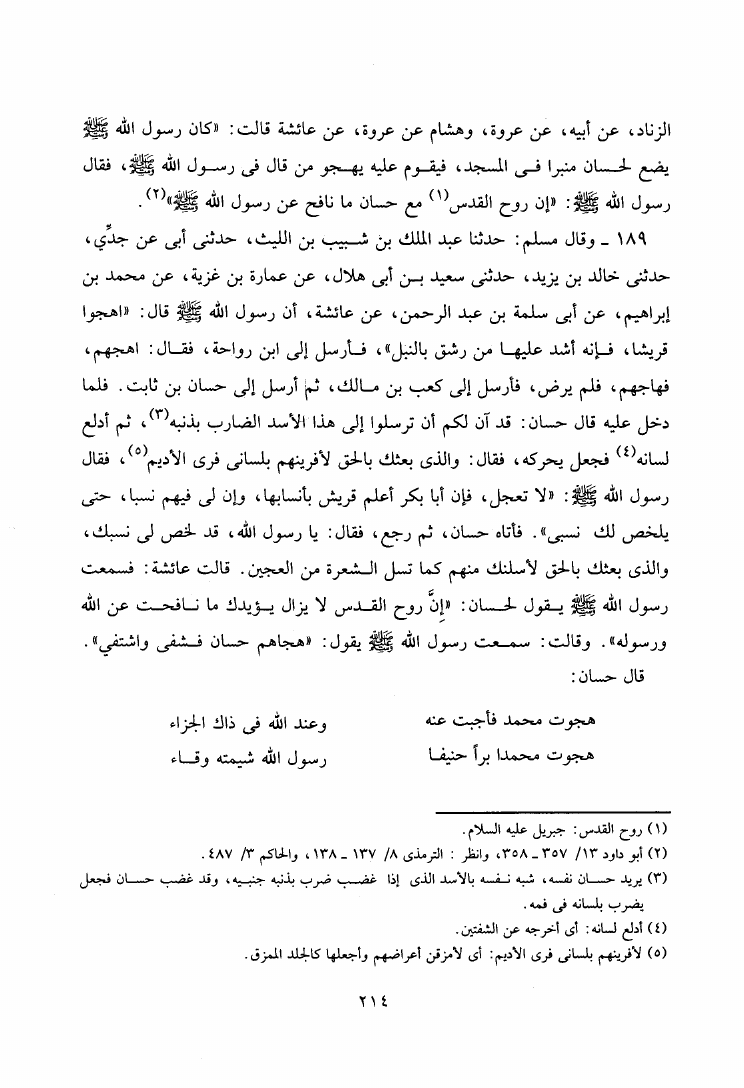 الزناد، عن أبيه، عن عروة، وهشام عن عروة، عن عائشة قالت: «كان رسول الله ﷺ
يضع لحسان منبرا فى المسجد، فيقوم عليه يهجو من قال فى رسول الله ﷺ، فقال
رسول الله ﷺ: «إن روح القدس(١) مع حسان ما نافح عن رسول الله ﷺ»(٢).
١٨٩ ـ وقال مسلم: حدثنا عبد الملك بن شبيب بن الليث، حدثنى أبى عن جدِّي،
حدثنى خالد بن يزيد، حدثنى سعيد بن أبى هلال، عن عمارة بن غزية، عن محمد بن
إبراهيم، عن أبى سلمة بن عبد الرحمن، عن عائشة، أن رسول الله ﷺ قال: «اهجوا
قريشا، فإنه أشد عليها من رشق بالنبل»، فأرسل إلى ابن رواحة، فقال: اهجهم،
فهاجهم، فلم يرض، فأرسل إلى كعب بن مالك، ثم أرسل إلى حسان بن ثابت. فلما
دخل عليه قال حسان: قد آن لكم أن ترسلوا إلى هذا الأسد الضارب بذنبه(٣)، ثم أدلع
لسانه(٤) فجعل يحركه، فقال: والذى بعثك بالحق لأفرينهم بلسانى فرى الأديم(٥)، فقال
رسول الله ﷺ: «لا تعجل، فإن أبا بكر أعلم قريش بأنسابها، وإن لى فيهم نسبا، حتى
يلخص لك نسبي». فأتاه حسان، ثم رجع، فقال: يا رسول الله، قد لخص لى نسبك،
والذى بعثك بالحق لأسلنك منهم كما تسل الشعرة من العجين. قالت عائشة: فسمعت
رسول الله ﷺ يقول لحسان: «إِنَّ روح القدس لا يزال يؤيدك ما نافحت عن الله
ورسوله». وقالت: سمعت رسول الله ﷺ يقول: «هجاهم حسان فشفى واشتفي».
قال حسان:
هجوت محمد فأجبت عنه وعند الله فى ذاك الجزاء
هجوت محمدا براً حنيفا رسول الله شيمته وقاء
(١) روح القدس: جبريل عليه السلام.
(٢) أبو داود ١٣/ ٣٥٧ ـ ٣٥٨، وانظر : الترمذى ٨/ ١٣٧ ـ ١٣٨، والحاكم ٣/ ٤٨٧.
(٣) يريد حسان نفسه، شبه نفسه بالأسد الذى إذا غضب ضرب بذنبه جنبيه، وقد غضب حسان فجعل
يضرب بلسانه فى فمه.
(٤) أدلع لسانه: أى أخرجه عن الشفتين.
(٥) لأفرينهم بلسانى فرى الأديم: أى لأمزقن أعراضهم وأجعلها كالجلد الممزق.
٢١٤